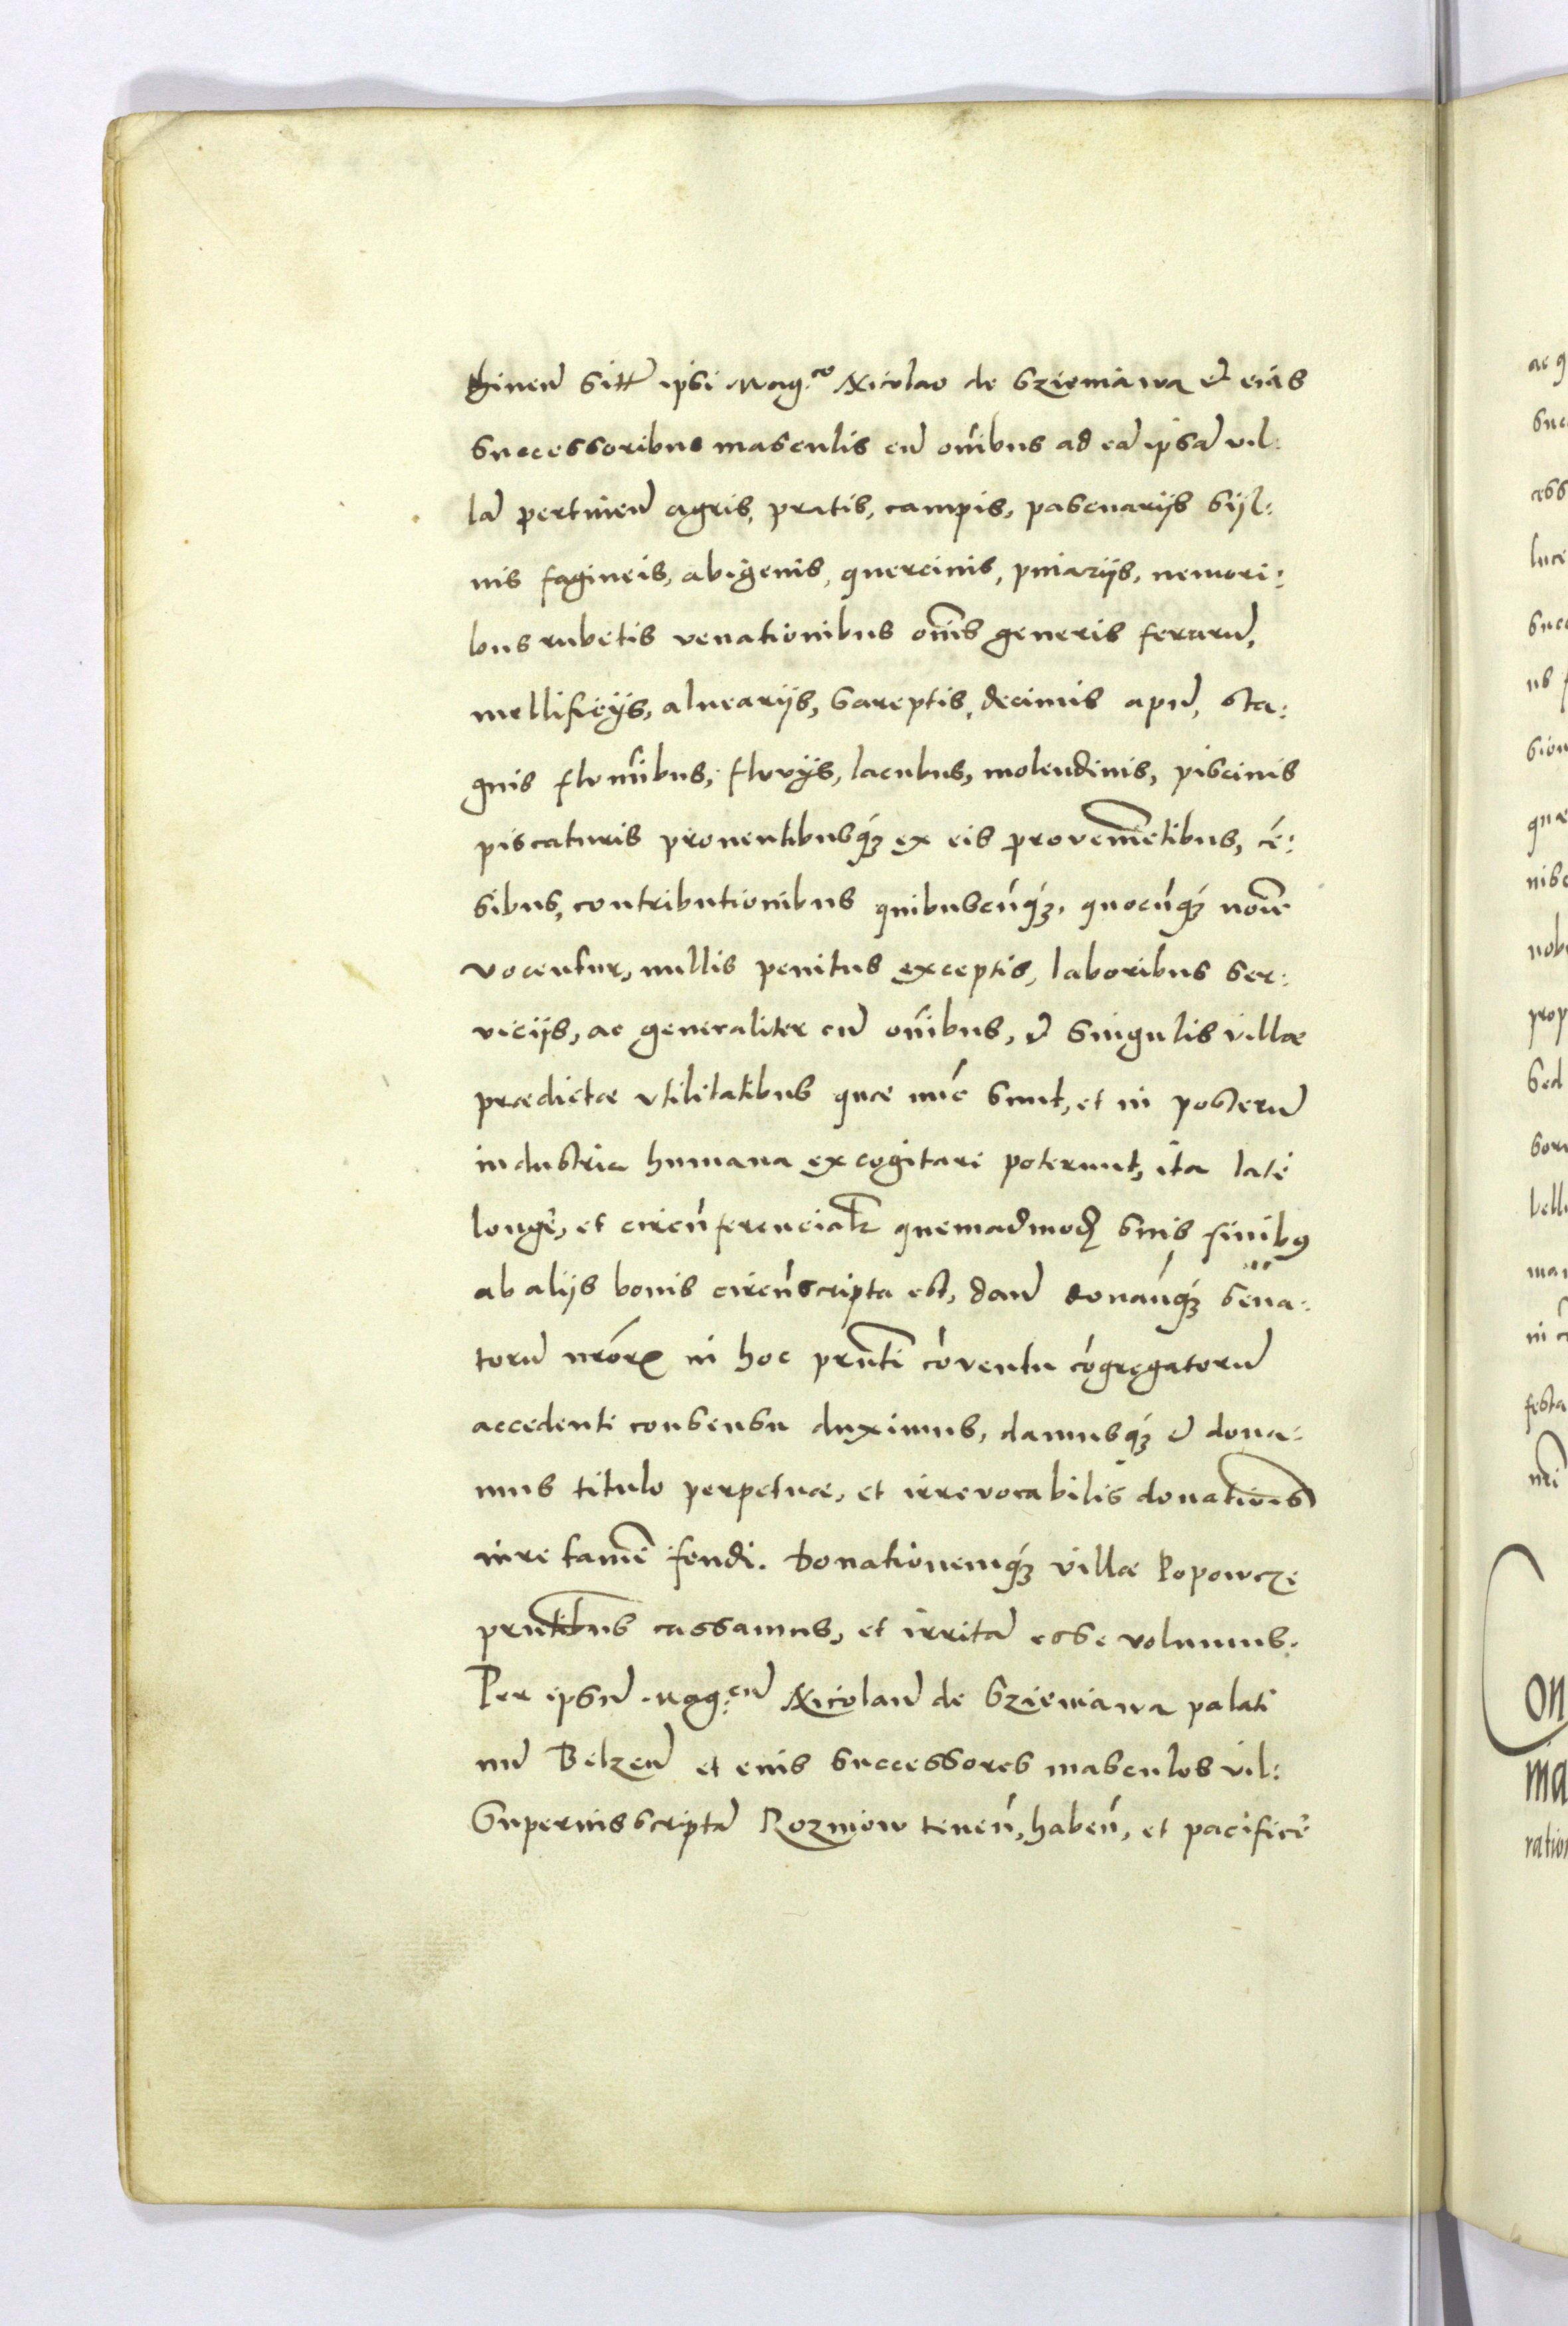 tineñ sitam ipsi Mag.co Nicolao de Szieniawa et eius
successoribus masculis cū oībus ad eā ipsā vil:
lā pertineñ agris, pratis, campis, pascuarijs sijl:
uis fagineis, abigenis, quercinis, piniarijs, nemori:
bus rubetis venationibus oīis generis ferarū,
mellificijs, aluearijs, gareptis, decimis apū, sta:
gnis flumībus, fluvijs, lacubus, molendinis, piscinis
piscaturis prouentibusq́ʒ ex eis provenīetibus, cē:
sibus, contributionibus quibuscūq́ʒ. quocūq́ʒ noīe
vocentur, nullis penitus exceptis, laboribus ser:
viciis, ac generaliter cū oībus, et singulis villæ
prædictæ vtilitatibus quæ nūc sunt, et in posterū
industria humana excogitari poterunt, ita latè
longè, et circūferencialr quemadmodū suis finibus
ab alijs bonis circūscripta est, dañ donañq́ʒ sena:
torū nrōrū in hoc prnti cōventu cōgregatorū
accedenti consensu duximus, damusq́ʒ et dona:
mus titulo perpetuæ, et irrevocabilis donationis
iure tamē feudi. Donationemq́ʒ villæ Popowcze
prntibus cassamus, et irritā esse volumus.
Per ipsū Mag.cū Nicolaū de Szieniawa palati
nū Belzeñ et eius successores masculos vil:
Superius scriptā Rozniow teneñ, habeñ, et pacificè